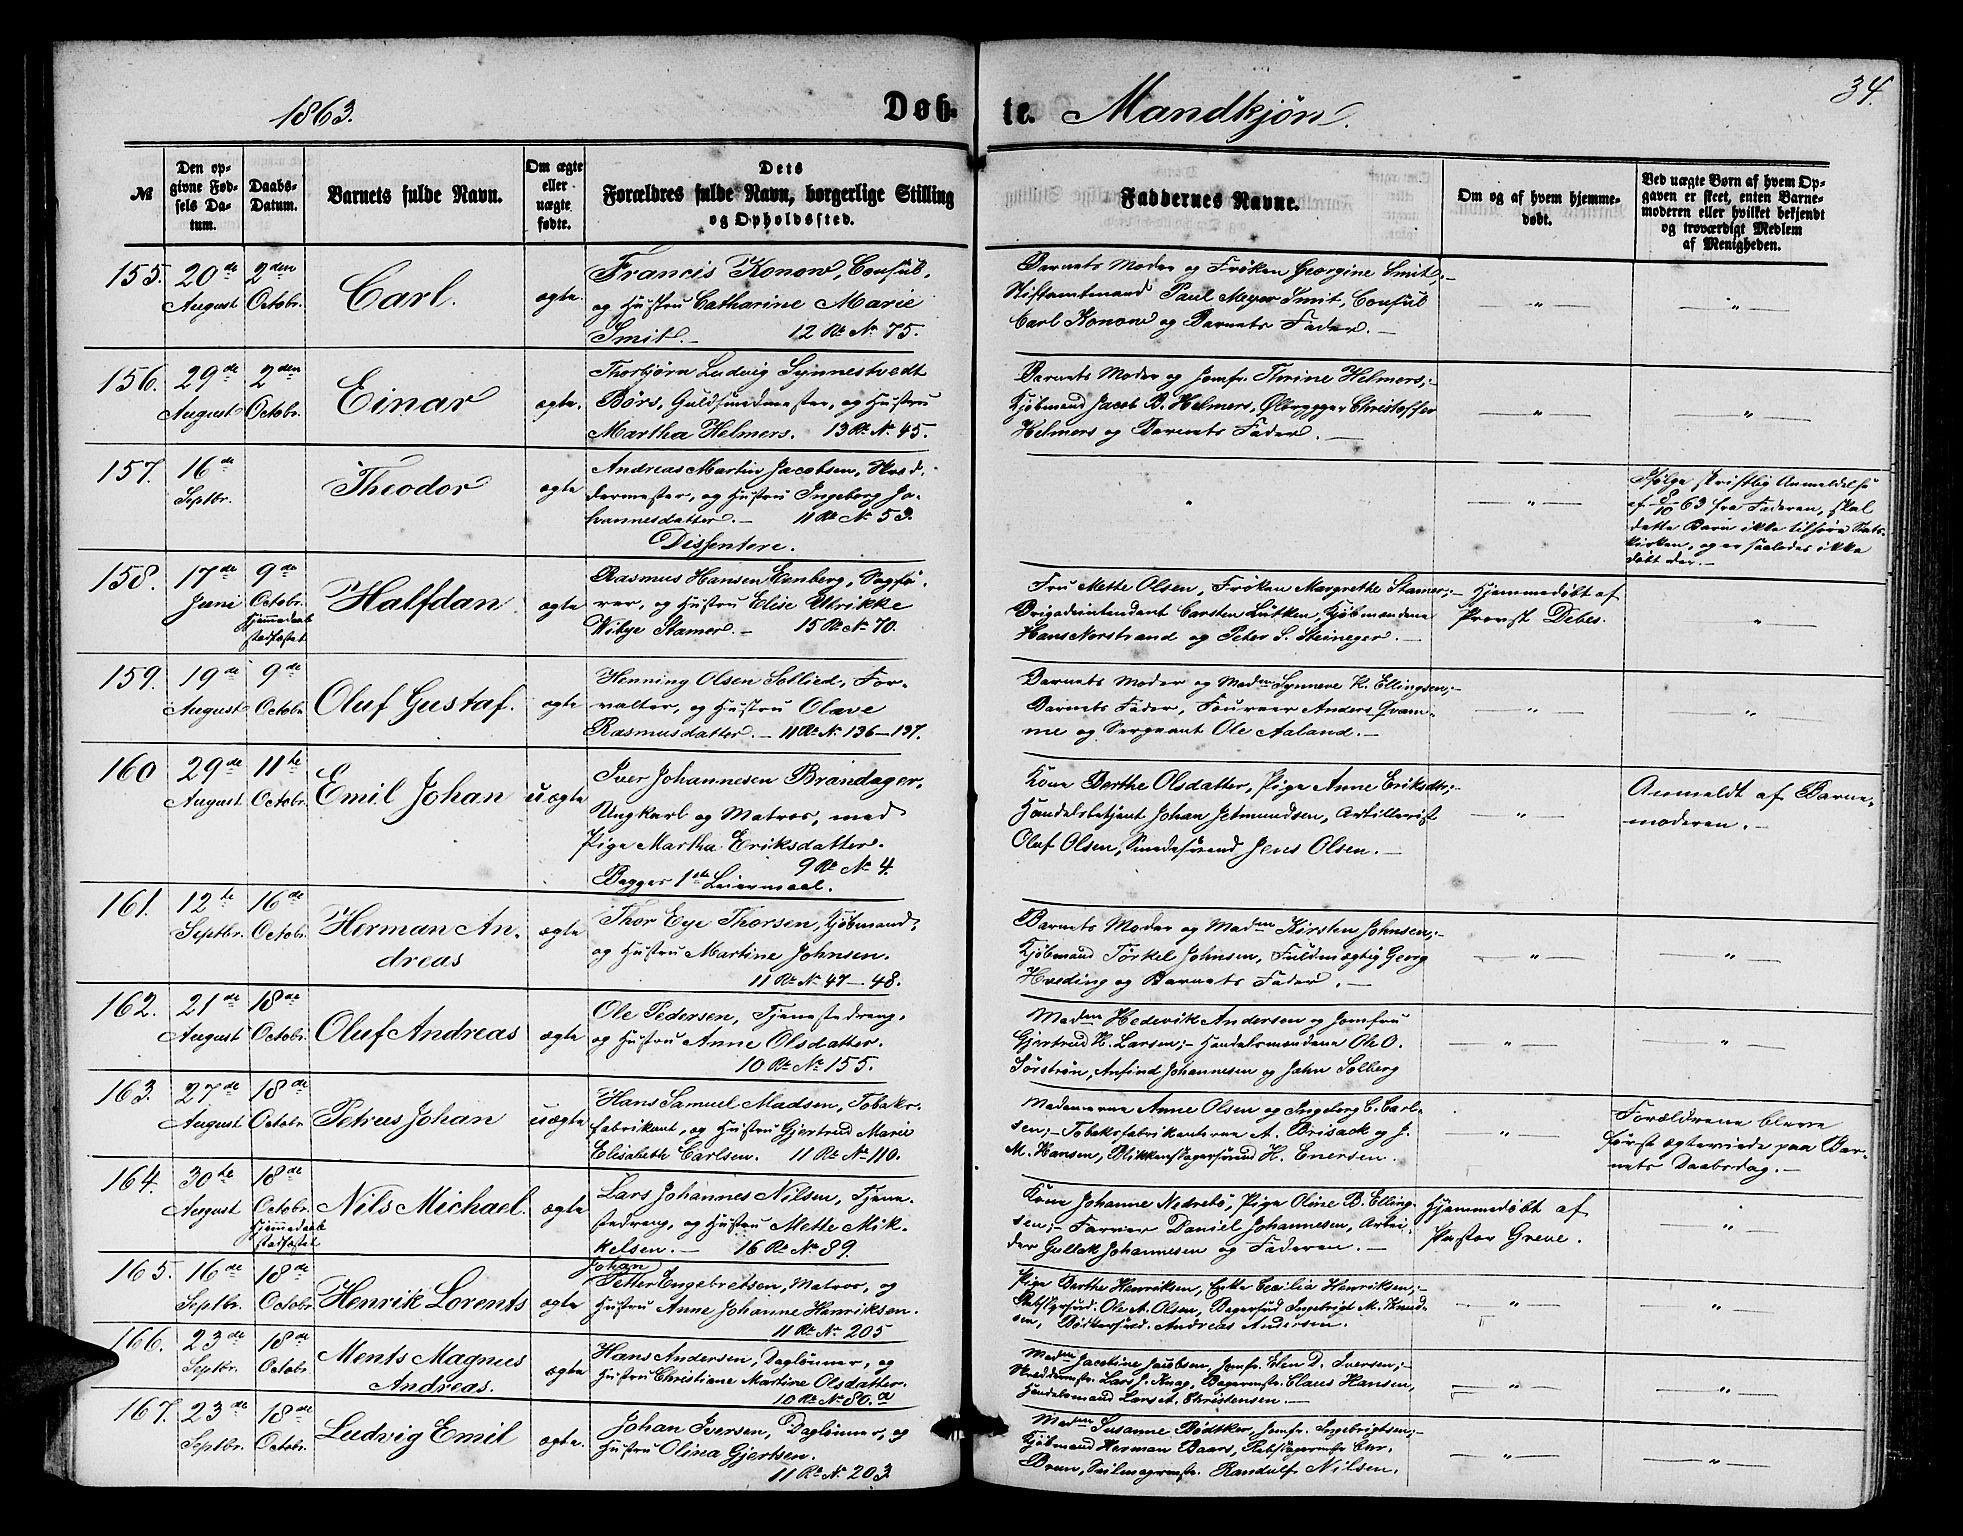 1863.
Døb-
te.
Mandkjön.
34.
№
Den op-
givne Fød-
sels Da-
tum.
Daabs-
Datum.
Barnets fulde Navn.
Om ægte
eller
uægte
fødte.
Dets
Forældres fulde Navn, borgerlige Stilling
og Opholdssted.
Faddernes Navne.
Om og af hvem hjemme-
døbt.
Ved uægte Børn af hvem Op-
gaven er skeet, enten Barne-
moderen eller hvilket bekjendt
og troværdigt Medlem
af Menigheden.
155. 20de August 2den Octobr. Carl. ægte.
Francis Konow, Consul,
og Hustru Catharine Marie
Smit. – 12 Rd. No. 75.
Barnets Moder og Frøken Georgine Smit;-
Stiftamtmand Paul Meyer Smit, Consul
Carl Konow og Barnets Fader. –
156. 29de August 2den Octobr. Einar ægte.
Thorbjörn Ludvig Synnestvedt
Börs, Guldsmedmester, og Hustru
Martha Helmers. 13 Rd. No. 45.
Barnets Moder og Jomfr. Thrine Helmers;-
Kjöbmand Jacob B. Helmers, Ølbrygger Christoffer
Helmers og Barnets Fader. –
157. 16de Septbr. Theodor ægte
Andreas Martin Jacobsen, Skred-
dermester, og Hustru Ingeborg Jo-
hannesdatter. – 11 Rd. No. 53.
Dissentere.
Ifølge skriftlig Anmeldelse
af 8/10 63 fra Faderen, skal
dette Barn ikke tilhöre Stats-
kirken, og er saaledes ikke
döbt der. –
158. 17de Juni 9de Octobr. Hjemmedaab stadfæstet Halfdan ægte
Rasmus Hansen Ernberg, Sagfø-
rer, og Hustru Elise Ulrikke
Wibye Stamer. – 15 Rd. No. 70.
Fru Mette Olsen, Frøken Margrethe Stamer;-
Brigadeintendant Carsten Lütken, Kjøbmændene
Hans Norstrand og Peter S. Steineger. –
Hjemmedøbt af
Provst Debes.
159. 19de August 9de Octobr. Oluf Gustaf. ægte
Henning Olsen Sollied, For-
valter, og Hustru Olave
Rasmusdatter. – 11 Rd. No. 136–137.
Barnets Moder og Maden Synneve K. Ellingsen;-
Barnets Fader, Foureer Anders Qvam-
me og Sergeant Ole Aaland. –
160 29de August 11te Octobr. Emil Johan uægte
Iver Johannesen Brandager,
Ungkarl og Matros, med
Pige Martha Eriksdatter.
9 Rd. No. 4.
Begges 1ste Leiermaal.
Kone Berthe Olsdatter, Pige Anne Eriksdtr;-
Handelsbetjent Johan Jetmundsen, Artillerist
Oluf Olsen, Smedesvend Jens Olsen. –
Anmeldt af Barne-
moderen. –
161. 12te Septbr. 16de Octobr. Herman An-
dreas ægte
Thor Eye Thorsen, Kjöbmand,
og Hustru Martine Johnsen.
11 Rd. No. 47–48.
Barnets Moder og Maden Kirsten Johnsen;-
Kjöbmand Törkel Johnsen, Fuldmægtig Georg
Hveding og Barnets Fader. –
162. 21de August 18de Octobr. Oluf Andreas ægte
Ole Pedersen, Tjenestedreng,
og Hustru Anne Olsdatter.
10 Rd. No. 155.
Maden Hedevik Andersen og Jomfru
Gjertrud H. Larsen;- Handelsmændene Ole O.
Sörströn, Anfind Johannesen og Jahn Solberg
163. 27de August 18de Octobr. Petrus Johan uægte
Hans Samuel Madsen, Tobaks-
fabrikant, og Hustru Gjertrud Marie
Elisabeth Carlsen. 11 Rd. No. 110.
Madamerne Anne Olsen og Ingeborg C. Carl-
sen;- Tobaksfabrikanterne A. Brisack og J.
M. Hansen, Blikkenslagersvend H. Enersen.
Forældrene bleve
først ægteviede paa Bar-
nets Daabsdag. –
164. 30te August 18de Octobr. Hjemmedaab stadfæstet Nils Michael. ægte
Lars Johannes Nilsen, Tjene-
stedreng, og Hustru Mette Mik-
kelsen. – 16 Rd. No. 89.
Kone Johanne Nedretö, Pige Oline B. Elling-
sen;- Farver Daniel Johannesen, Arbei-
der Gullak Johannesen og Faderen. –
Hjemmedöbt af
Pastor Greve.
165. 16de Septbr. 18de Octobr. Henrik Lorents ægte
Johan
Petter Engebretsen, Matros, og
Hustru Anne Johanne Henriksen.
11 Rd. No. 205
Pige Berthe Henriksen, Enke Cecilia Henriksen;-
Rebslgersvd. Ole A. Olsen, Bagersvd Ingebrigt M. Knud-
sen, Bödkersvd. Andreas Andersen.
166. 23de Septbr. 18de Octobr. Ments Magnus
Andreas. ægte
Hans Andersen, Daglönner, og
Hustru Christiane Martine Olsdatter.
10 Rd. No. 80.a
Maden Jacobine Jacobsen, Jomfr. Elen D. Iversen;-
Skreddermstr Lars J. Knag, Bagermstr. Claus Hansen,
Handelsmand Lars A. Christensen. –
167. 23de Septbr. 18de Octobr. Ludvig Emil ægte.
Johan Iversen, Daglönner, og
Hustru Olina Gjertsen.
11 Rd. No. 203.
Maden Susanne Bödtker, Jomfr. Ingebrigtsen;-
Kjöbmand Herman Baars, Rebslagermstr Chr.
Brun, Seilmagermstr. Randulf Nilsen.